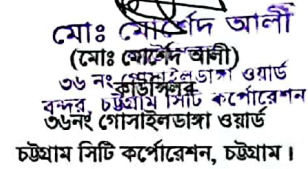 মোঃ মোর্শেদ আলী
(মোঃ মোর্শেদ আলী)
৩৬ নং গোসাইলডাঙ্গা ওয়ার্ড
কাউন্সিলর
বন্দর, চট্টগ্রাম সিটি কর্পোরেশন
৩৬নং গোসাইলডাঙ্গা ওয়ার্ড
চট্টগ্রাম সিটি কর্পোরেশন, চট্টগ্রাম।